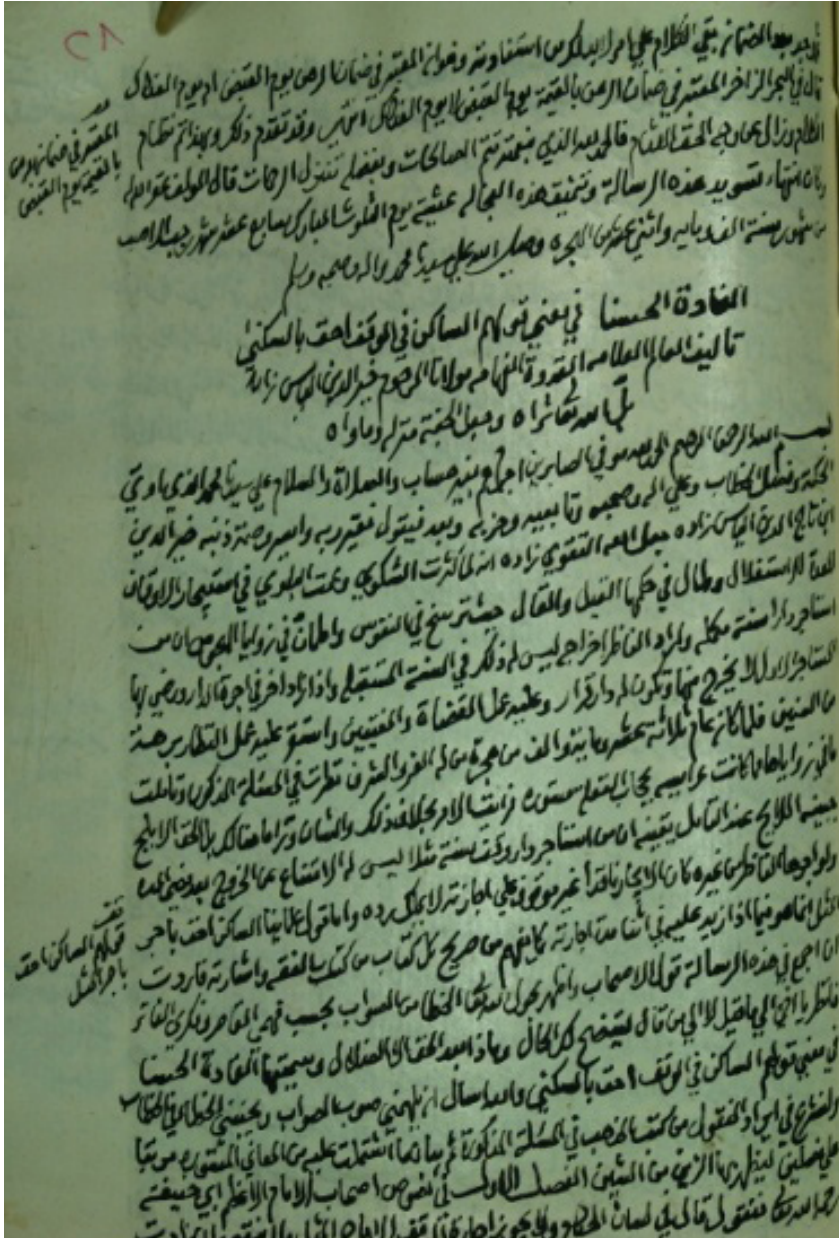 بقي الكلام علي امر لابد لك من استفادته وهو ان المعتبر في ضمان الرهن يوم القبض ام يوم الهلاك
قال في البحر الزاخر المعتبر في ضمان الرهن بالقيمة يوم القبض لا يوم الهلاك انتهي وقد تقدم ذلك وبهذا تم نظام
الكلام وزال عن وجه الحق اللثام فالحمد لله الذي بنعمته تتم الصالحات وبفضله تتنزل الرحمات قال المولف غفر الله له
وكان انتهاء تسويد هذه الرسالة وتنميق هذه العجالة عشية يوم الثلوثا المبارك سابع عشر شهر رجب الاصب
من شهور سنة الف وماية واثني عشر من الهجرة وصلي الله علي سيدنا محمد واله وصحبه وسلم
المعتبر في ضمان الرهن
بالقيمة يوم القبض
الغادة الحسنا في معني قولهم الساكن في الوقف احق بالسكني
تاليف العالم العلامه القدوة الفهامه مولانا المرحوم خير الدين الياس زاده
الله تعالي ثراه وجعل الجنة منزله وماواه
بسم الله الرحمن الرحيم الحمد لله موفي الصابرين اجرهم بغير حساب والصلاة والسلام علي سيدنا محمد الذي اوتي
الحكمة وفصل الخطاب وعلي اله وصحبه وتابعيه وحزبه وبعد فيقول فقير ربه واسير وصمة ذنبه خير الدين
ابن تاج الدين الياس زاده جعل الله التقوي زاده انه لما كثرت الشكوي وعمت البلوي في استيجار الاوقاف
المعدة للاستغلال وطال في حكمها القيل والقال حتي رسخ في النفوس واطمأن في زوايا ان من
استاجر دارا سنة مكمله واراد الناظر اخراجه ليس له ذلك في السنة المستقبله واذا زاد اخر في اجرة الدار ورضي بها
المستاجر الاول لا يخرج منها وتكون له دار قرار وعليه عمل القضاة والمفتيين واستمر عليه عمل النظار برهة
من السنين فلما كان عام ثلاثة عشر وماية والف من هجرة من له العز والشرف نظرت في المسئلة المذكورة وتاملت
ما في زواياها وكانت عرايسه بحجاب مستوره فرايت الامر بخلاف ذلك والشان وراء ما هنالك بل الحق الابلج
عند التامل يقينه ان من استاجر دار وقف سنة مثلا ليس له الامتناع عن الخروج بعد مضي المده
ولو اجرها الناظر من غيره كان الايجار نافذا غير موقوف علي اجازته لا يملك رده واما قول علماينا الساكن احق باجر
المثل انما هو فيما اذا زيد عليه في اثنا مدة اجارته كما يفهم من صريح كل كتاب من كتب الفقه واشارته فاردت
قف
قولهم الساكن احق
باجر المثل
ان اجمع في هذه الرسالة قول الاصحاب واظهر بعون الله تعالي الخطا من الصواب بحسب فهمي القاصر وفكري الفاتر
فانظر يا اخي الي ما قيل لا الي من قال ليتضح لك الحال وماذا بعد الحق الا الضلال وسميتها الغادة الحسنا
في معني قولهم الساكن في الوقف احق بالسكني والله اسال ان يلهمني صوب الصواب ويجنبني الخطا في الخطاب
ولنشرع في ايراد المنقول من كتب المذهب في المسئلة المذكورة ثم بيان ما اشتملت عليه من المعاني المنثوره مرتبا
علي فصلين ليظهر بها الزين من الشين الفصل الاول في نصوص اصحاب الامام الاعظم ابي حنيفة
رحمه الله تعالي فنقول قال في لسان الحكام ولا يجوز اجارة الوقف الا باجر المثل